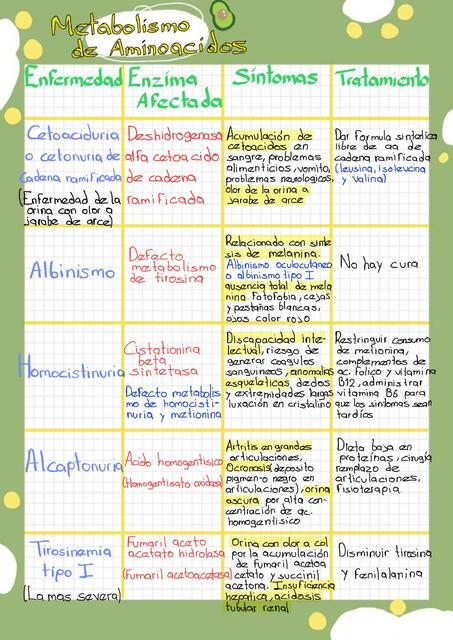 Metabolismo
de Aminoacidos
Enfermedad
Enzima
Afectada
Síntomas
Tratamiento
Cetoaciduria
o cetonuria de
cadena ramificada
(Enfermedad de la
orina con olor a
jarabe de arce)
Deshidrogenasa
alfa cetoacido
de cadena
ramificada
Acumulación de
cetoacidos en
sangre, problemas
alimenticios, vomito,
problemas neurologicos,
olor de la orina a
jarabe de arce
Dar formula sintetica
libre de aa de
cadena ramificada
(leusina, isoleucina
y valina)
Albinismo
Defecto
metabolismo
de tirosina
Relacionado con sinte
sis de melanina.
Albinismo oculocutaneo
o albinismo tipo I
ausencia total de mela
nina. Fotofobia, cejas
y pestañas blancas,
ojos color rojo
No hay cura
Homocistinuria
Cistationina
beta
sintetasa
Defecto metabolis
mo de homocisti-
nuria y metionina
Discapacidad inte-
lectual, riesgo de
generar coagulos
sanguineos, anomalias
esqueleticas, dedos
y extremidades largas
luxación en cristalino
Restringir consumo
de metionina,
complementos de
ac. folico y vitamina
B12, administrar
vitamina B6 para
que los sintomas sean
tardios
Alcaptonuria
Acido homogentisico
(Homogentisato oxidasa)
Artritis en grandes
articulaciones,
Ocronosis (deposito
pigmen-o negro en
articulaciones), orina
oscura por alta con-
centración de ac.
homogentisico
Dieta baja en
proteínas, cirugía
remplazo de
articulaciones,
fisioterapia.
Tirosinemia
tipo I
(La mas severa)
Fumaril aceto
acetato hidrolasa
(Fumaril acetoacetasa)
Orina con olor a col
por la acumulación
de fumaril acetoa
cetato y succinil
acetona. Insuficiencia
hepatica, acidosis
tubular renal
Disminuir tirosina
y fenilalanina